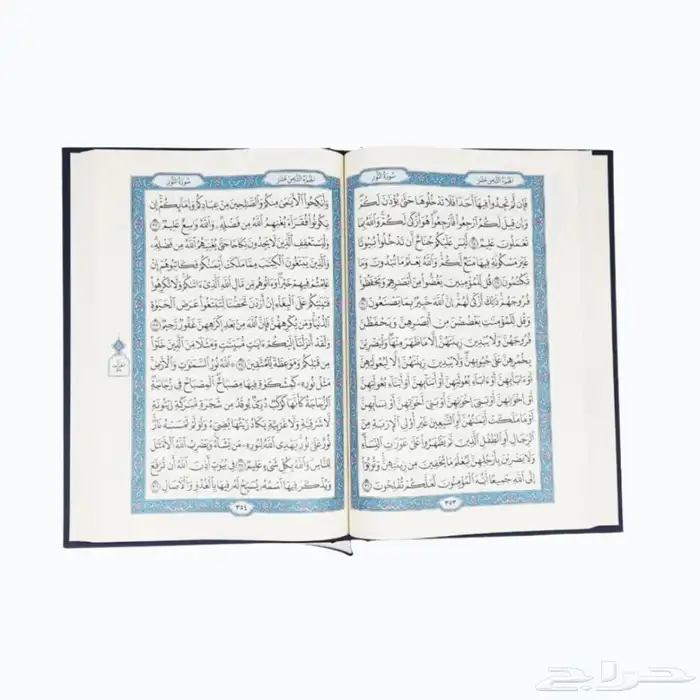 الجزء الثامن عشر
سورة النور
فَإِن لَّمْ تَجِدُوا۟ فِيهَآ أَحَدًا فَلَا تَدْخُلُوهَا حَتَّىٰ يُؤْذَنَ لَكُمْ
وَإِن قِيلَ لَكُمُ ٱرْجِعُوا۟ فَٱرْجِعُوا۟ هُوَ أَزْكَىٰ لَكُمْ وَٱللَّهُ بِمَا
تَعْمَلُونَ عَلِيمٌ ٢٨ لَّيْسَ عَلَيْكُمْ جُنَاحٌ أَن تَدْخُلُوا۟ بُيُوتًا
غَيْرَ مَسْكُونَةٍ فِيهَا مَتَٰعٌ لَّكُمْ وَٱللَّهُ يَعْلَمُ مَا تُبْدُونَ وَمَا
تَكْتُمُونَ ٢٩ قُل لِّلْمُؤْمِنِينَ يَغُضُّوا۟ مِنْ أَبْصَٰرِهِمْ وَيَحْفَظُوا۟
فُرُوجَهُمْ ذَٰلِكَ أَزْكَىٰ لَهُمْ إِنَّ ٱللَّهَ خَبِيرٌۢ بِمَا يَصْنَعُونَ ٣٠
وَقُل لِّلْمُؤْمِنَٰتِ يَغْضُضْنَ مِنْ أَبْصَٰرِهِنَّ وَيَحْفَظْنَ
فُرُوجَهُنَّ وَلَا يُبْدِينَ زِينَتَهُنَّ إِلَّا مَا ظَهَرَ مِنْهَا وَلْيَضْرِبْنَ
بِخُمُرِهِنَّ عَلَىٰ جُيُوبِهِنَّ وَلَا يُبْدِينَ زِينَتَهُنَّ إِلَّا لِبُعُولَتِهِنَّ
أَوْ ءَابَآئِهِنَّ أَوْ ءَابَآءِ بُعُولَتِهِنَّ أَوْ أَبْنَآئِهِنَّ أَوْ أَبْنَآءِ بُعُولَتِهِنَّ
أَوْ إِخْوَٰنِهِنَّ أَوْ بَنِىٓ إِخْوَٰنِهِنَّ أَوْ بَنِىٓ أَخَوَٰتِهِنَّ أَوْ نِسَآئِهِنَّ
أَوْ مَا مَلَكَتْ أَيْمَٰنُهُنَّ أَوِ ٱلتَّٰبِعِينَ غَيْرِ أُو۟لِى ٱلْإِرْبَةِ مِنَ
ٱلرِّجَالِ أَوِ ٱلطِّفْلِ ٱلَّذِينَ لَمْ يَظْهَرُوا۟ عَلَىٰ عَوْرَٰتِ ٱلنِّسَآءِ
وَلَا يَضْرِبْنَ بِأَرْجُلِهِنَّ لِيُعْلَمَ مَا يُخْفِينَ مِن زِينَتِهِنَّ وَتُوبُوٓا۟
إِلَى ٱللَّهِ جَمِيعًا أَيُّهَ ٱلْمُؤْمِنُونَ لَعَلَّكُمْ تُفْلِحُونَ ٣١
٣٥٣
الجزء الثامن عشر
سورة النور
وَأَنكِحُوا۟ ٱلْأَيَٰمَىٰ مِنكُمْ وَٱلصَّٰلِحِينَ مِنْ عِبَادِكُمْ وَإِمَآئِكُمْ إِن
يَكُونُوا۟ فُقَرَآءَ يُغْنِهِمُ ٱللَّهُ مِن فَضْلِهِۦ وَٱللَّهُ وَٰسِعٌ عَلِيمٌ ٣٢
وَلْيَسْتَعْفِفِ ٱلَّذِينَ لَا يَجِدُونَ نِكَاحًا حَتَّىٰ يُغْنِيَهُمُ ٱللَّهُ مِن فَضْلِهِۦ
وَٱلَّذِينَ يَبْتَغُونَ ٱلْكِتَٰبَ مِمَّا مَلَكَتْ أَيْمَٰنُكُمْ فَكَاتِبُوهُمْ إِنْ
عَلِمْتُمْ فِيهِمْ خَيْرًا وَءَاتُوهُم مِّن مَّالِ ٱللَّهِ ٱلَّذِىٓ ءَاتَىٰكُمْ وَلَا تُكْرِهُوا۟
فَتَيَٰتِكُمْ عَلَى ٱلْبِغَآءِ إِنْ أَرَدْنَ تَحَصُّنًا لِّتَبْتَغُوا۟ عَرَضَ ٱلْحَيَوٰةِ
ٱلدُّنْيَا وَمَن يُكْرِههُّنَّ فَإِنَّ ٱللَّهَ مِنۢ بَعْدِ إِكْرَٰهِهِنَّ غَفُورٌ رَّحِيمٌ ٣٣
وَلَقَدْ أَنزَلْنَآ إِلَيْكُمْ ءَايَٰتٍ مُّبَيِّنَٰتٍ وَمَثَلًا مِّنَ ٱلَّذِينَ خَلَوْا۟
مِن قَبْلِكُمْ وَمَوْعِظَةً لِّلْمُتَّقِينَ ٣٤ ۞ ٱللَّهُ نُورُ ٱلسَّمَٰوَٰتِ وَٱلْأَرْضِ
مَثَلُ نُورِهِۦ كَمِشْكَوٰةٍ فِيهَا مِصْبَاحٌ ٱلْمِصْبَاحُ فِى زُجَاجَةٍ
ٱلزُّجَاجَةُ كَأَنَّهَا كَوْكَبٌ دُرِّىٌّ يُوقَدُ مِن شَجَرَةٍ مُّبَٰرَكَةٍ زَيْتُونَةٍ
لَّا شَرْقِيَّةٍ وَلَا غَرْبِيَّةٍ يَكَادُ زَيْتُهَا يُضِىٓءُ وَلَوْ لَمْ تَمْسَسْهُ نَارٌ
نُّورٌ عَلَىٰ نُورٍ يَهْدِى ٱللَّهُ لِنُورِهِۦ مَن يَشَآءُ وَيَضْرِبُ ٱللَّهُ ٱلْأَمْثَٰلَ
لِلنَّاسِ وَٱللَّهُ بِكُلِّ شَىْءٍ عَلِيمٌ ٣٥ فِى بُيُوتٍ أَذِنَ ٱللَّهُ أَن تُرْفَعَ
وَيُذْكَرَ فِيهَا ٱسْمُهُۥ يُسَبِّحُ لَهُۥ فِيهَا بِٱلْغُدُوِّ وَٱلْءَاصَالِ ٣٦
٣٥٤
حراج